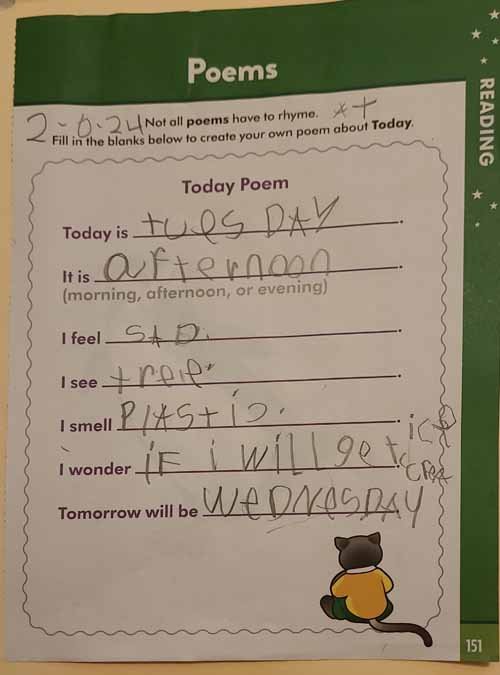 Poems
READING
2-6-24 Not all poems have to rhyme.
Fill in the blanks below to create your own poem about Today.
Today Poem
Today is tues DAY.
It is afternoon.
(morning, afternoon, or evening)
I feel SAD.
I see
I smell PlAStic.
I wonder iF i will get ice
crea
Tomorrow will be WeDNesDAY
151